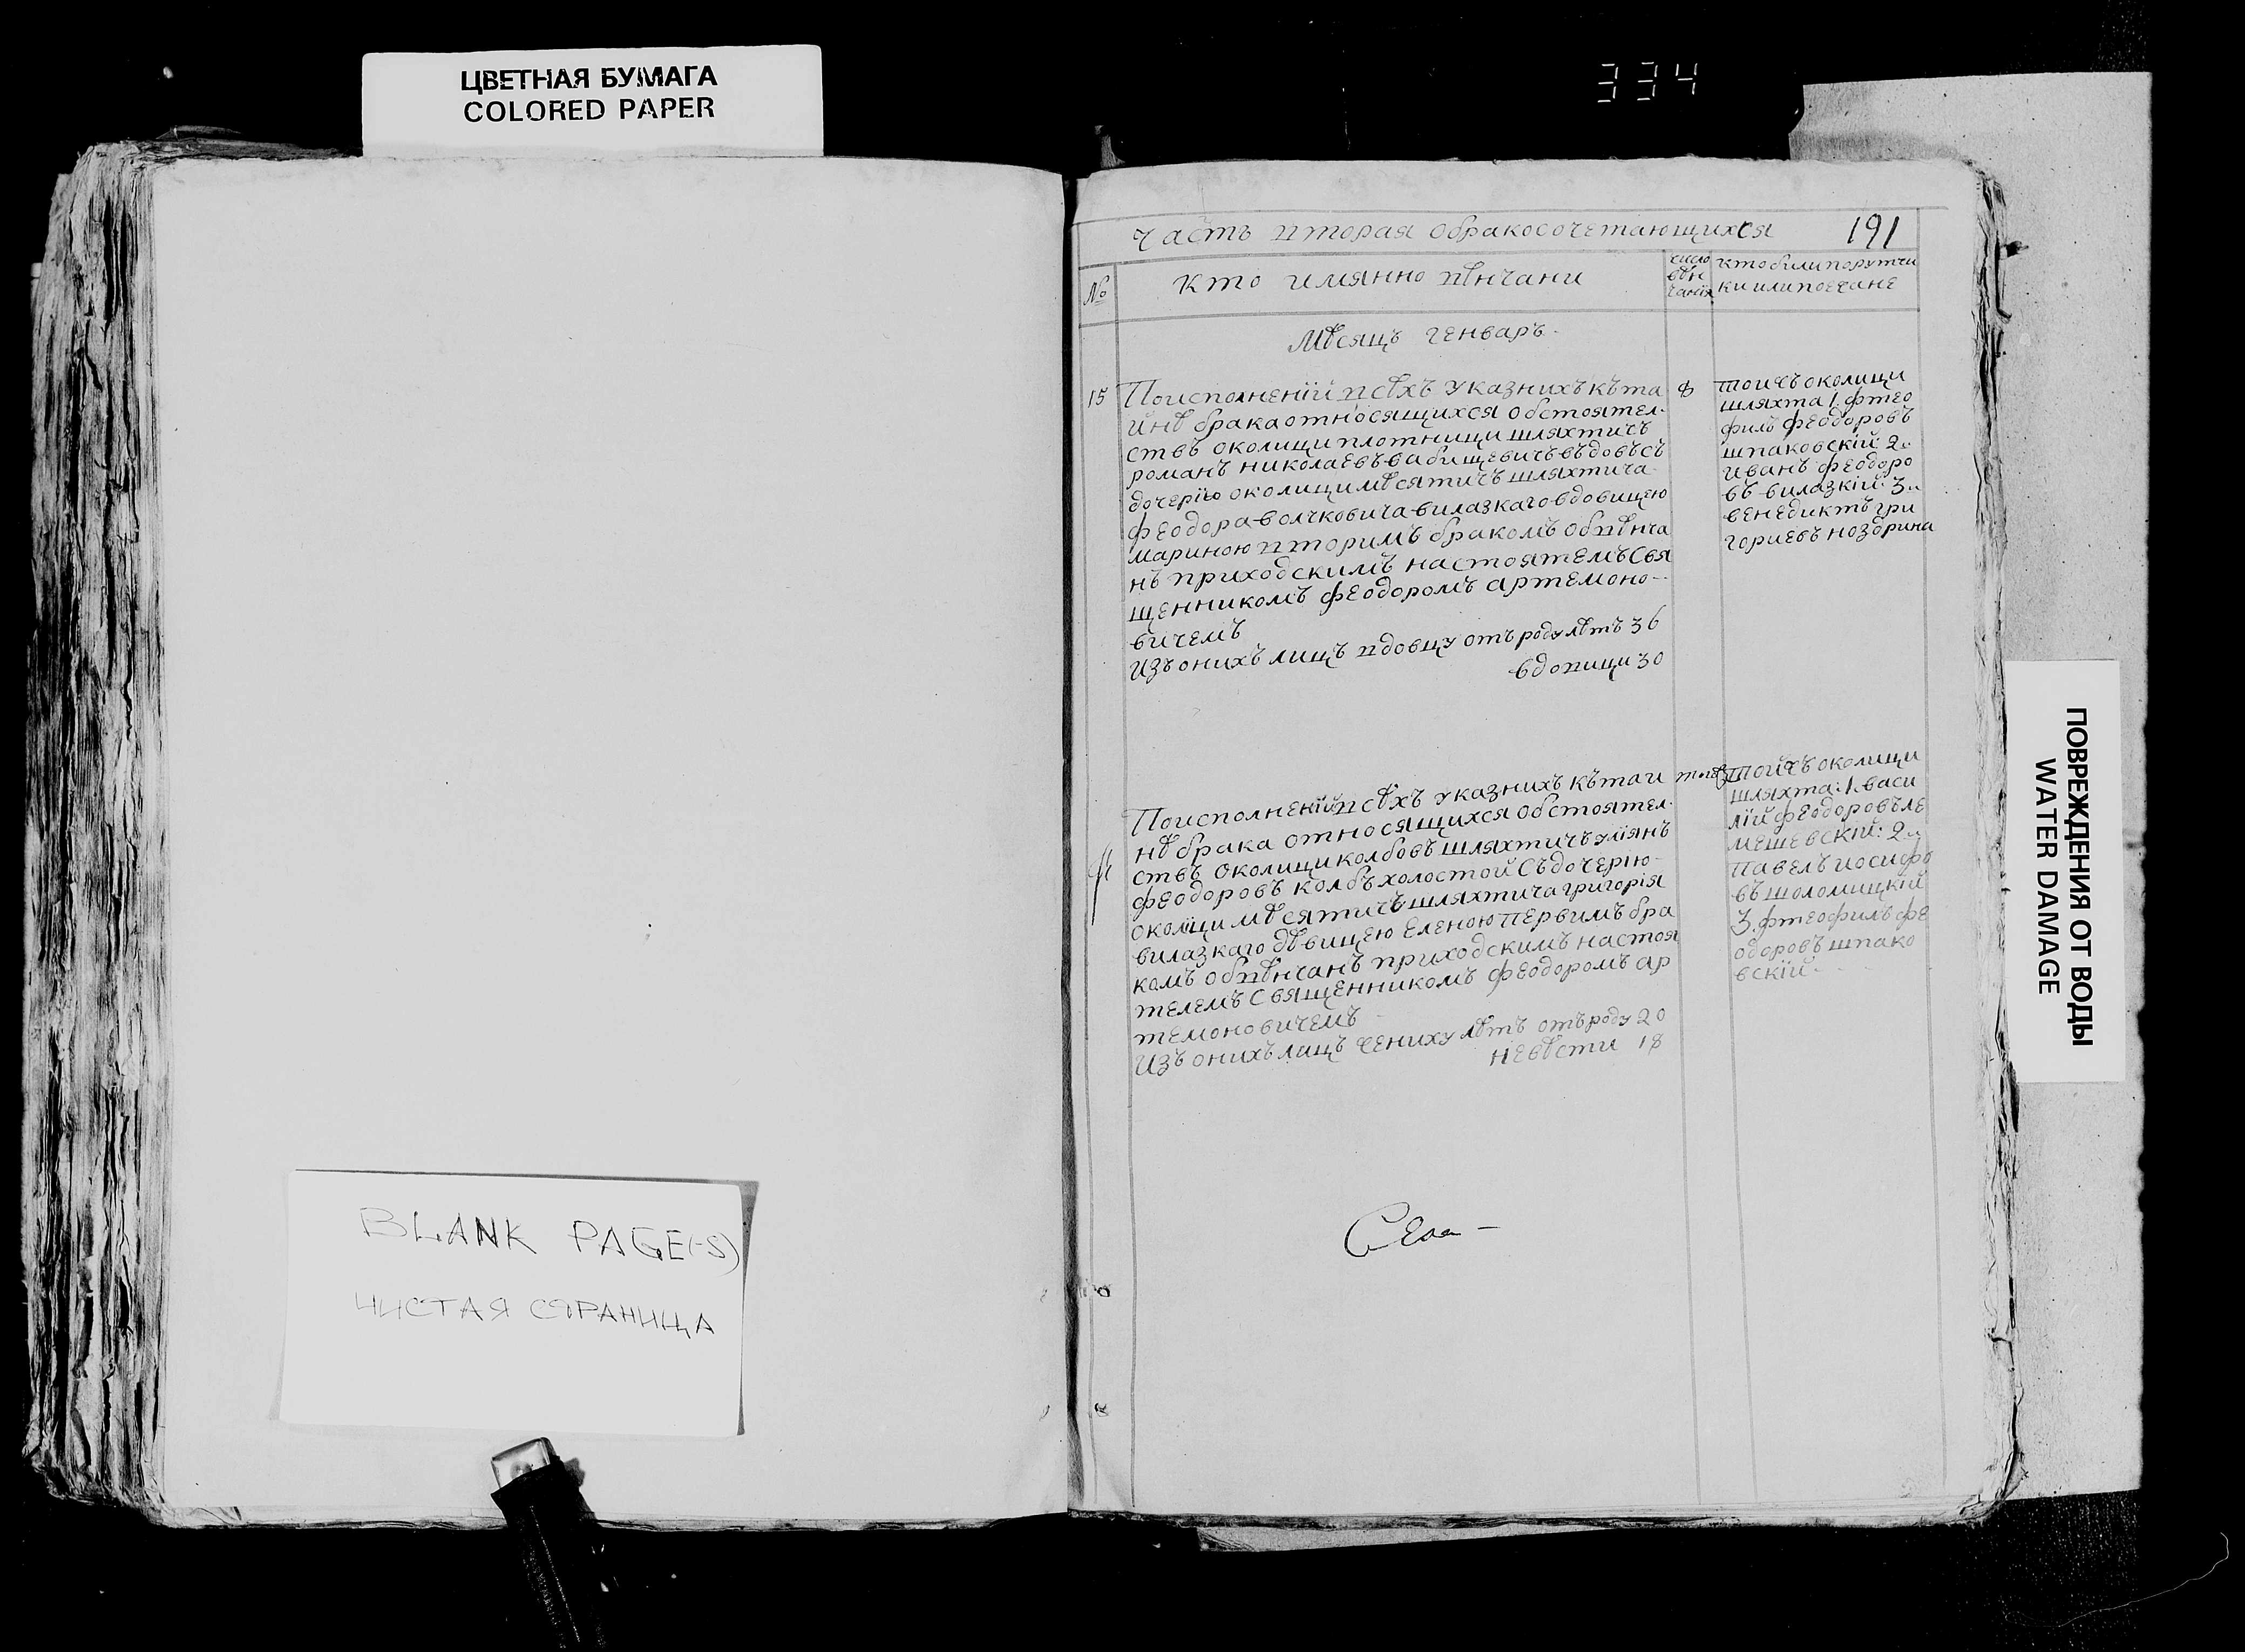 ЦВЕТНАЯ БУМАГА
COLORED PAPER
334
BLANK PAGE(-S)
ЧИСТАЯ СТРАНИЦА
Часть вторая обракосочетающихся 191
№
Кто имянно вѣнчани
число
вѣн
чанїя
Кто били поручи
ки или поезане
Мѣсяцъ генваръ.
15
Поисполненїй всѣхъ указнихъ къ та
йнѣ брака относящихся обстоятел.
ствъ околици плотници шляхтичъ
романъ николаевъ вабищевичъ въдовъ съ
дочерїю околици мѣсятичъ шляхтича
феодора волчковича вилазкаго вдовицею
мариною вторимъ бракомъ обвѣнча
нъ приходскимъ настоятемъ Свя
щенникомъ феодоромъ артемоно--
вичемъ
Изъ онихъ лицъ вдовцу отъ роду лѣтъ 36
вдовици 30
8
тоижъ околици
шляхта 1. фтео
филъ феодоровъ
шпаковскїй: 2.
Иванъ феодоро
въ вилазкїй: 3.
венедиктъ гри
гориевъ ноздрина
Поисполненїй всѣхъ указнихъ къ таи
нѣ брака относящихся обстоятел.
ствъ околици колбовъ шляхтичъ улїянъ
феодоровъ колбъ холостой Съ дочерїю
околици мѣсятичъ шляхтича григорїя
вилазкаго дѣвицею Еленою первимъ бра
комъ обвѣнчанъ приходскимъ настоя
телемъ Священникомъ феодоромъ ар
темоновичемъ
Изъ онихъ лицъ жениху лѣтъ отъ роду 20
невѣсти 18
тойжъ околици
шляхта: 1. васи
лїй феодоровъ ле
мешевскїй: 2.
Павелъ иосифо
въ шоломицкїй
3. фтеофилъ фе
одоровъ шпако
вскїй.
ПОВРЕЖДЕНИЯ ОТ ВОДЫ
WATER DAMAGE